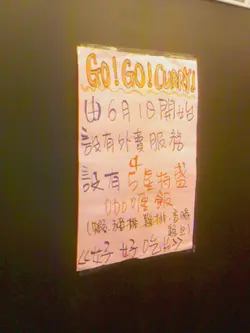 GO!GO!CURRY!
由6月1日開始
設有外賣服務
4
設有5星特盛
咖喱飯
(蝦.豬排.雞排.
《好好吃》